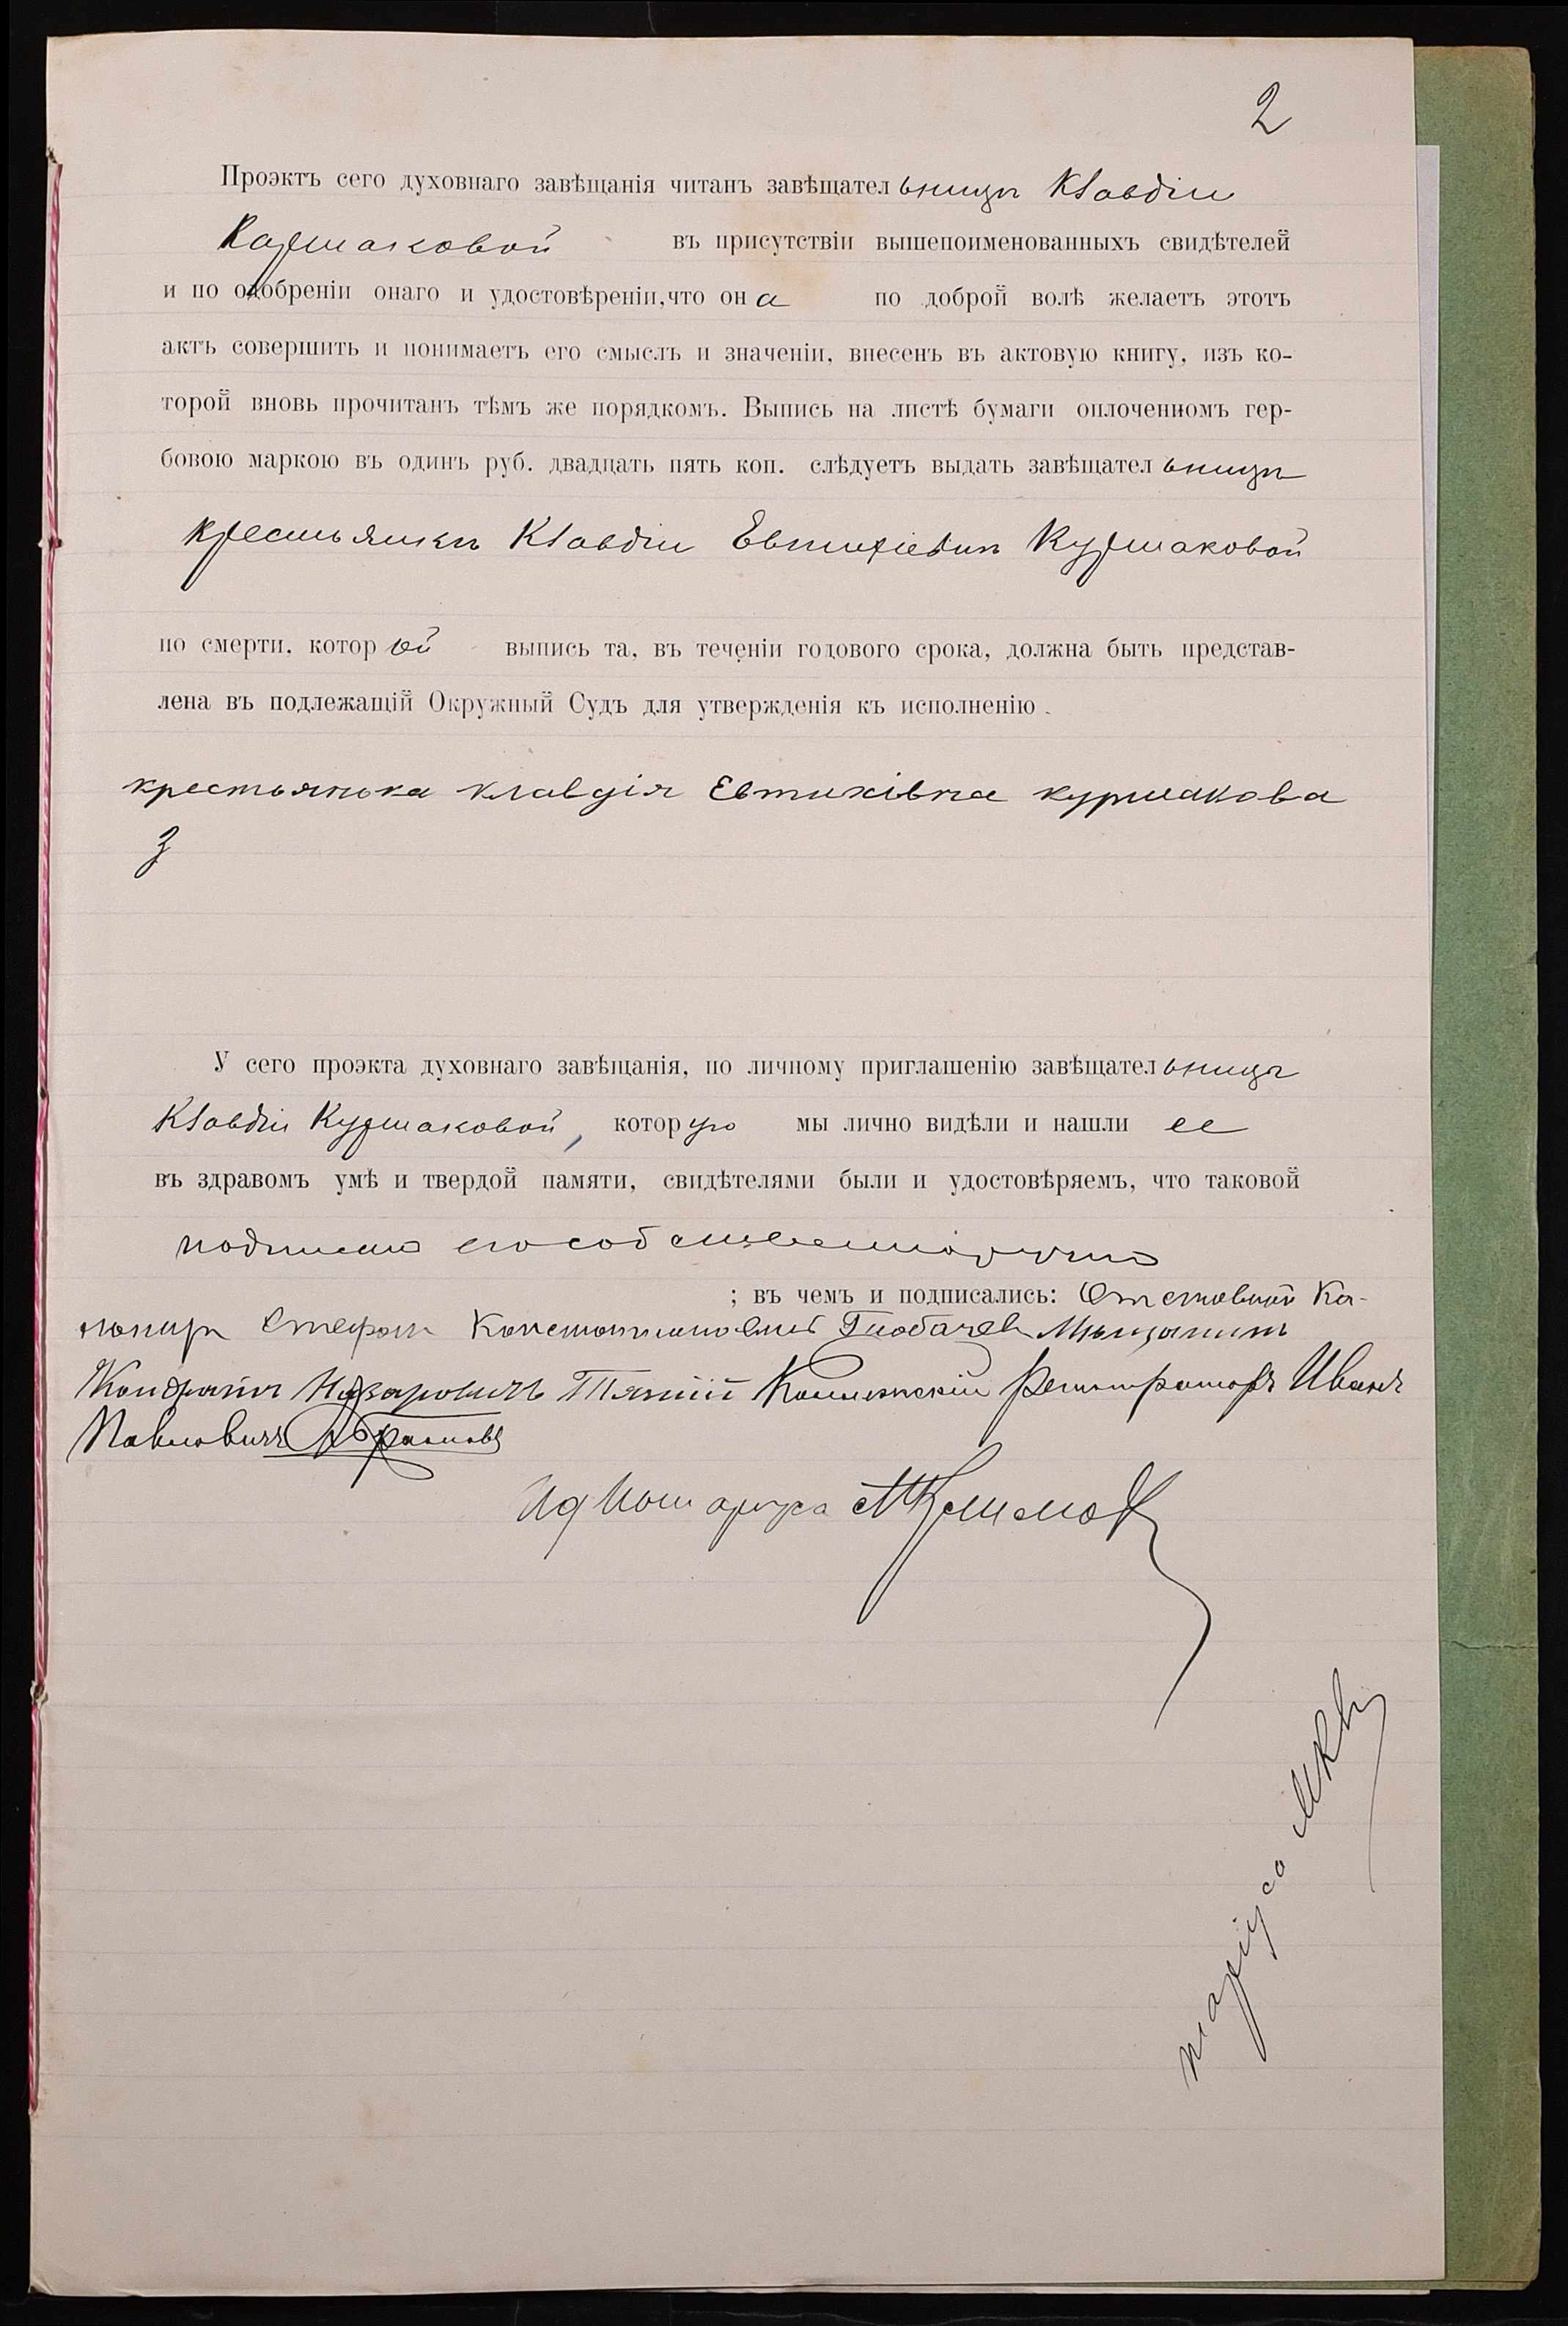 2
Проэктъ сего духовнаго завѣщанія читанъ завѣщательницѣ Клавдіи
Куршаковой въ присутствіи вышепоименованныхъ свидѣтелей
и по одобреніи онаго и удостовѣреніи, что она по доброй волѣ желаетъ этотъ
актъ совершить и понимаетъ его смыслъ и значеніи, внесенъ въ актовую книгу, изъ ко-
торой вновь прочитанъ тѣмъ же порядкомъ. Выпись на листѣ бумаги оплоченномъ гер-
бовою маркою въ одинъ руб. двадцать пять коп. слѣдуетъ выдать завѣщательницѣ
крестьянкѣ Клавдіи Евтихіевнѣ Куршаковой
по смерти, которой выпись та, въ теченіи годового срока, должна быть представ-
лена въ подлежащій Окружный Судъ для утвержденія къ исполненію.
крестьянька клавдія Евтихівна куршакова
У сего проэкта духовнаго завѣщанія, по личному приглашенію завѣщательницы
Клавдіи Куршаковой, которую мы лично видѣли и нашли ее
въ здравомъ умѣ и твердой памяти, свидѣтелями были и удостовѣряемъ, что таковой
подписанъ собственноручно
; въ чемъ и подписались: Отставной Ка-
нониръ Стефанъ Константиновичъ Мѣщанинъ
Кондратъ Назаровичъ Коллежскій Регистраторъ Иванъ
Павловичъ Абрамовъ
Ид Нотаріуса
нотаріуса